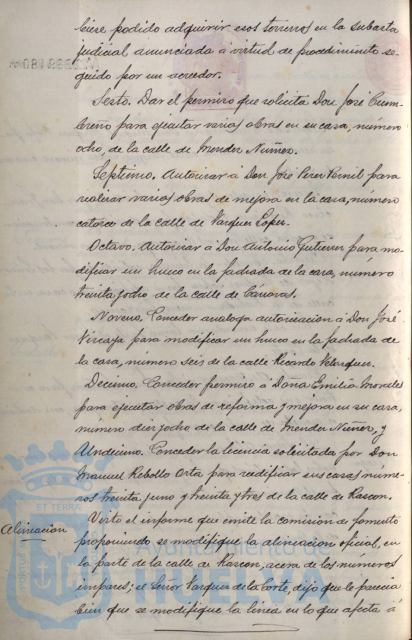 biere podido adquirir esos terrenos en la subasta
judicial anunciada á virtud de procedimiento se-
guido por un acreedor.
Sesto. Dar el permiso que solicita Don José Cum-
breño para ejecutar varias obras en su casa, número
ocho, de la calle de Mendez Nuñez.
Septimo. Autorizar á Don José Perez Pernil para
realizar varias obras de mejora en la casa, número
catorce de la calle de Vazquez Lopez.
Octavo. Autorizar á Don Antonio Gutierrez para mo-
dificar un hueco en la fachada de la casa, número
treinta y ocho de la calle de Cánovas.
Noveno. Conceder analoga autorizacion á Don José
Vizcaya para modificar un hueco en la fachada de
la casa, número seis de la calle Ricardo Velazquez.
Decimo. Conceder permiso á Doña Emilia Morales
para ejecutar obras de reforma y mejora en su casa,
número diez y ocho de la calle de Mendez Nuñez, y
Undecimo. Conceder la licencia solicitada por Don
Manuel Rebollo Orta para reedificar sus casas núme-
ros treinta y uno y treinta y tres de la calle de Rascon.
Alineacion
Visto el informe que emite la comision de fomento
proponiendo se modifique la alineacion oficial, en
la parte de la calle de Rascon, acera de los numeros
impares; el Señor Vazquez de la Corte, dijo que le parecia
bien que se modifique la linea en lo que afecta á
ET TERRA
Ayuntamiento de